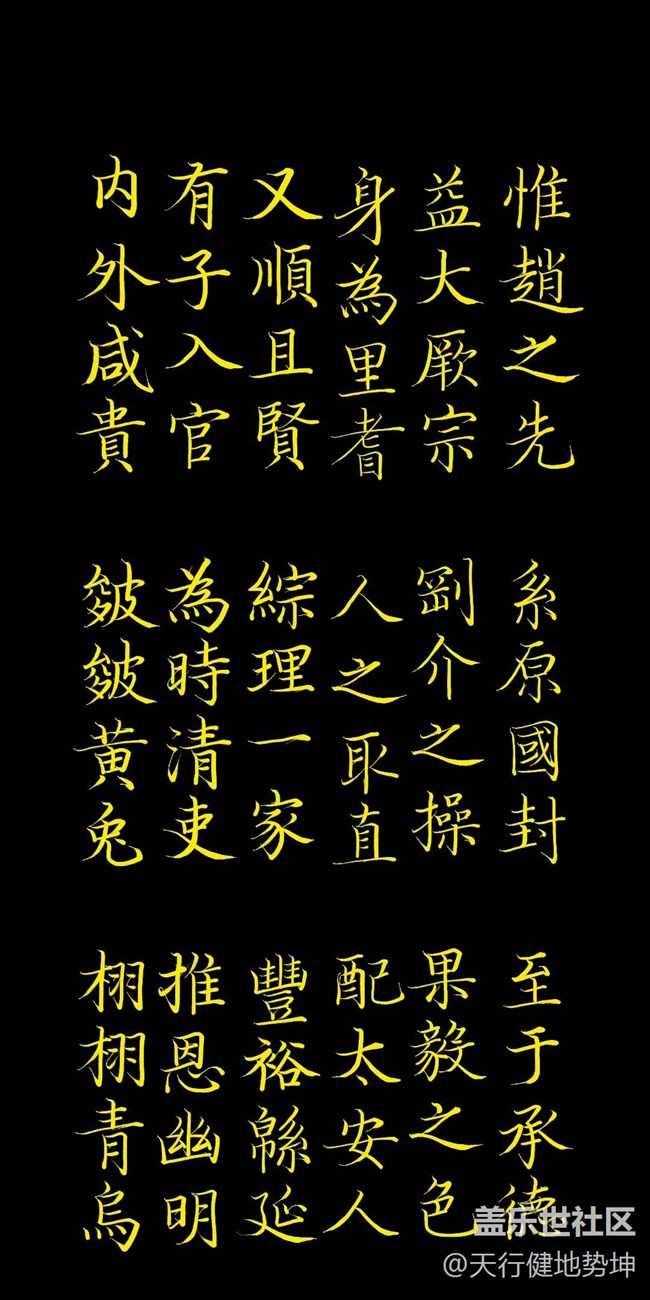 惟趙之先 系原國封 至于承德
益大厥宗 㓻介之操 果毅之色
身為里耆 人之取直 配太安人
又順且賢 綜理一家 豐裕緜延
有子入官 為時清吏 推恩幽明
内外咸貴 皺皺黃兔 栩栩青烏
盖乐世社区
@天行健地势坤